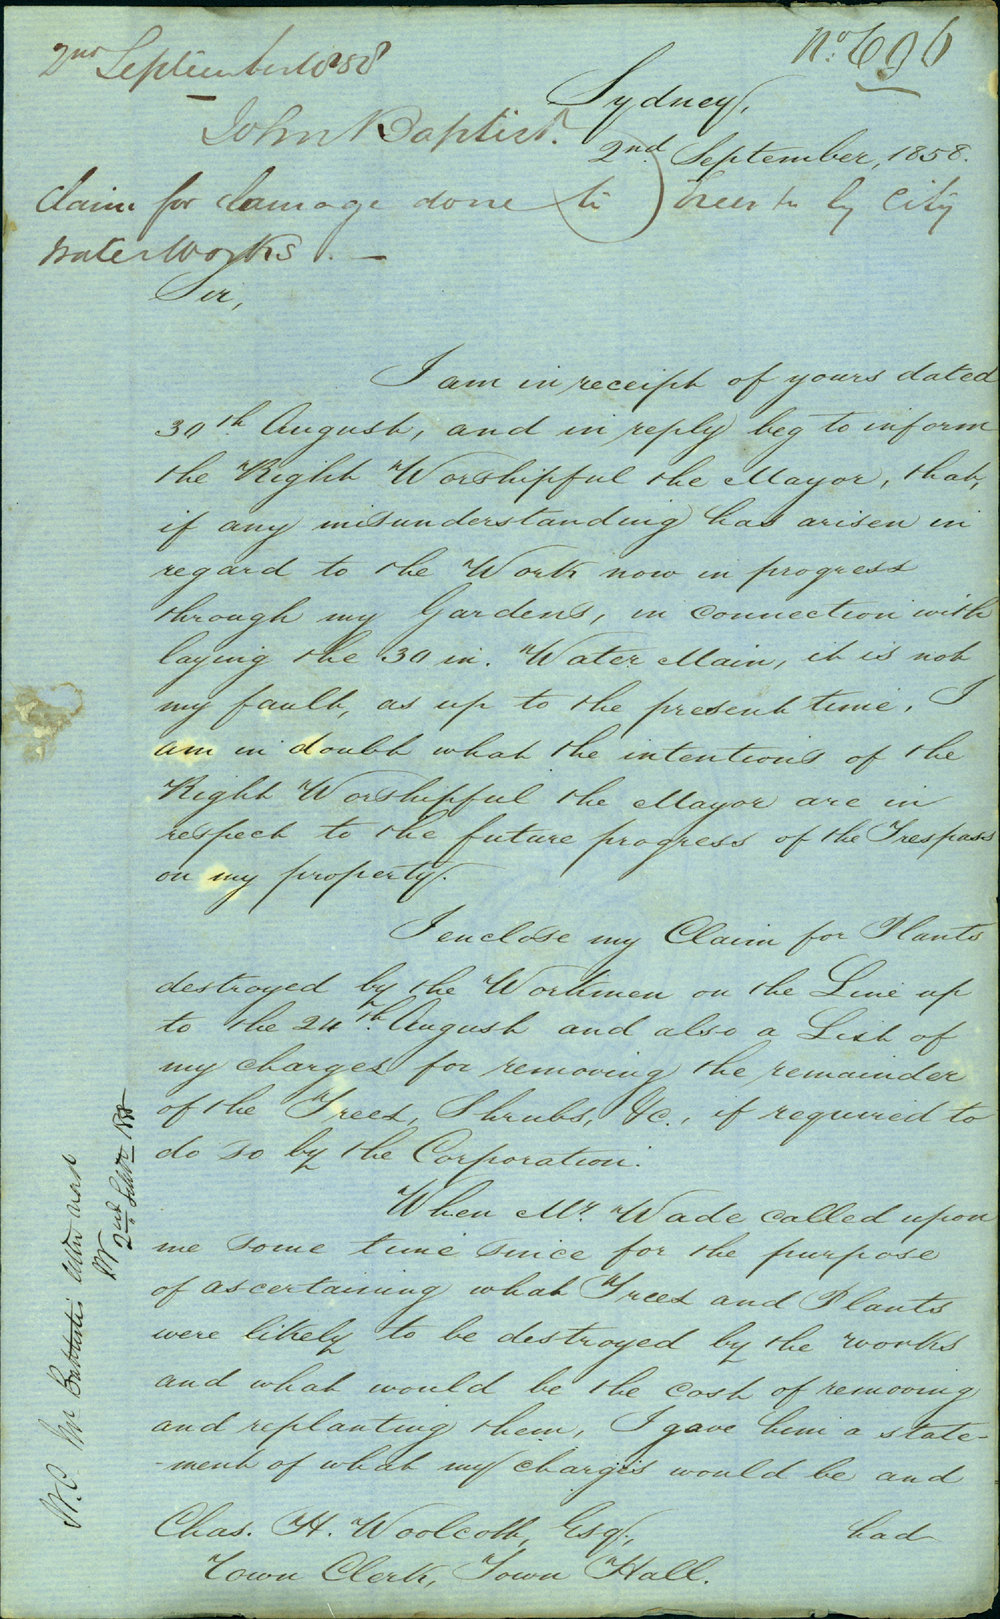 2nd September 1858
No. 696
John Baptist.
Sydney,
2nd September, 1858.
Claim for damage done to trees &c by City
Water Works. —
Sir,
I am in receipt of yours dated
30th. August, and in reply beg to inform
the Right Worshipful the Mayor, that,
if any misunderstanding has arisen in
regard to the Work now in progress
through my Gardens, in connection with
laying the 30 in. Water Main, it is not
my fault, as up to the present time, I
am in doubt what the intentions of the
Right Worshipful the Mayor are in
respect to the future progress of the Trespass
on my property.
I enclose my Claim for Plants
destroyed by the Workmen on the Line up
to the 24th. August and also a List of
my charges for removing the remainder
of the Trees, Shrubs, &c., if required to
do so by the Corporation.
When Mr. Wade called upon
me some time since for the purpose
of ascertaining what Trees and Plants
were likely to be destroyed by the works
and what would be the cost of removing
and replanting them, I gave him a state-
-ment of what my charges would be and
had
Chas. H. Woolcott, Esq.,
Town Clerk, Town Hall.
W.C. Mr Baptist's
2nd Septr 188